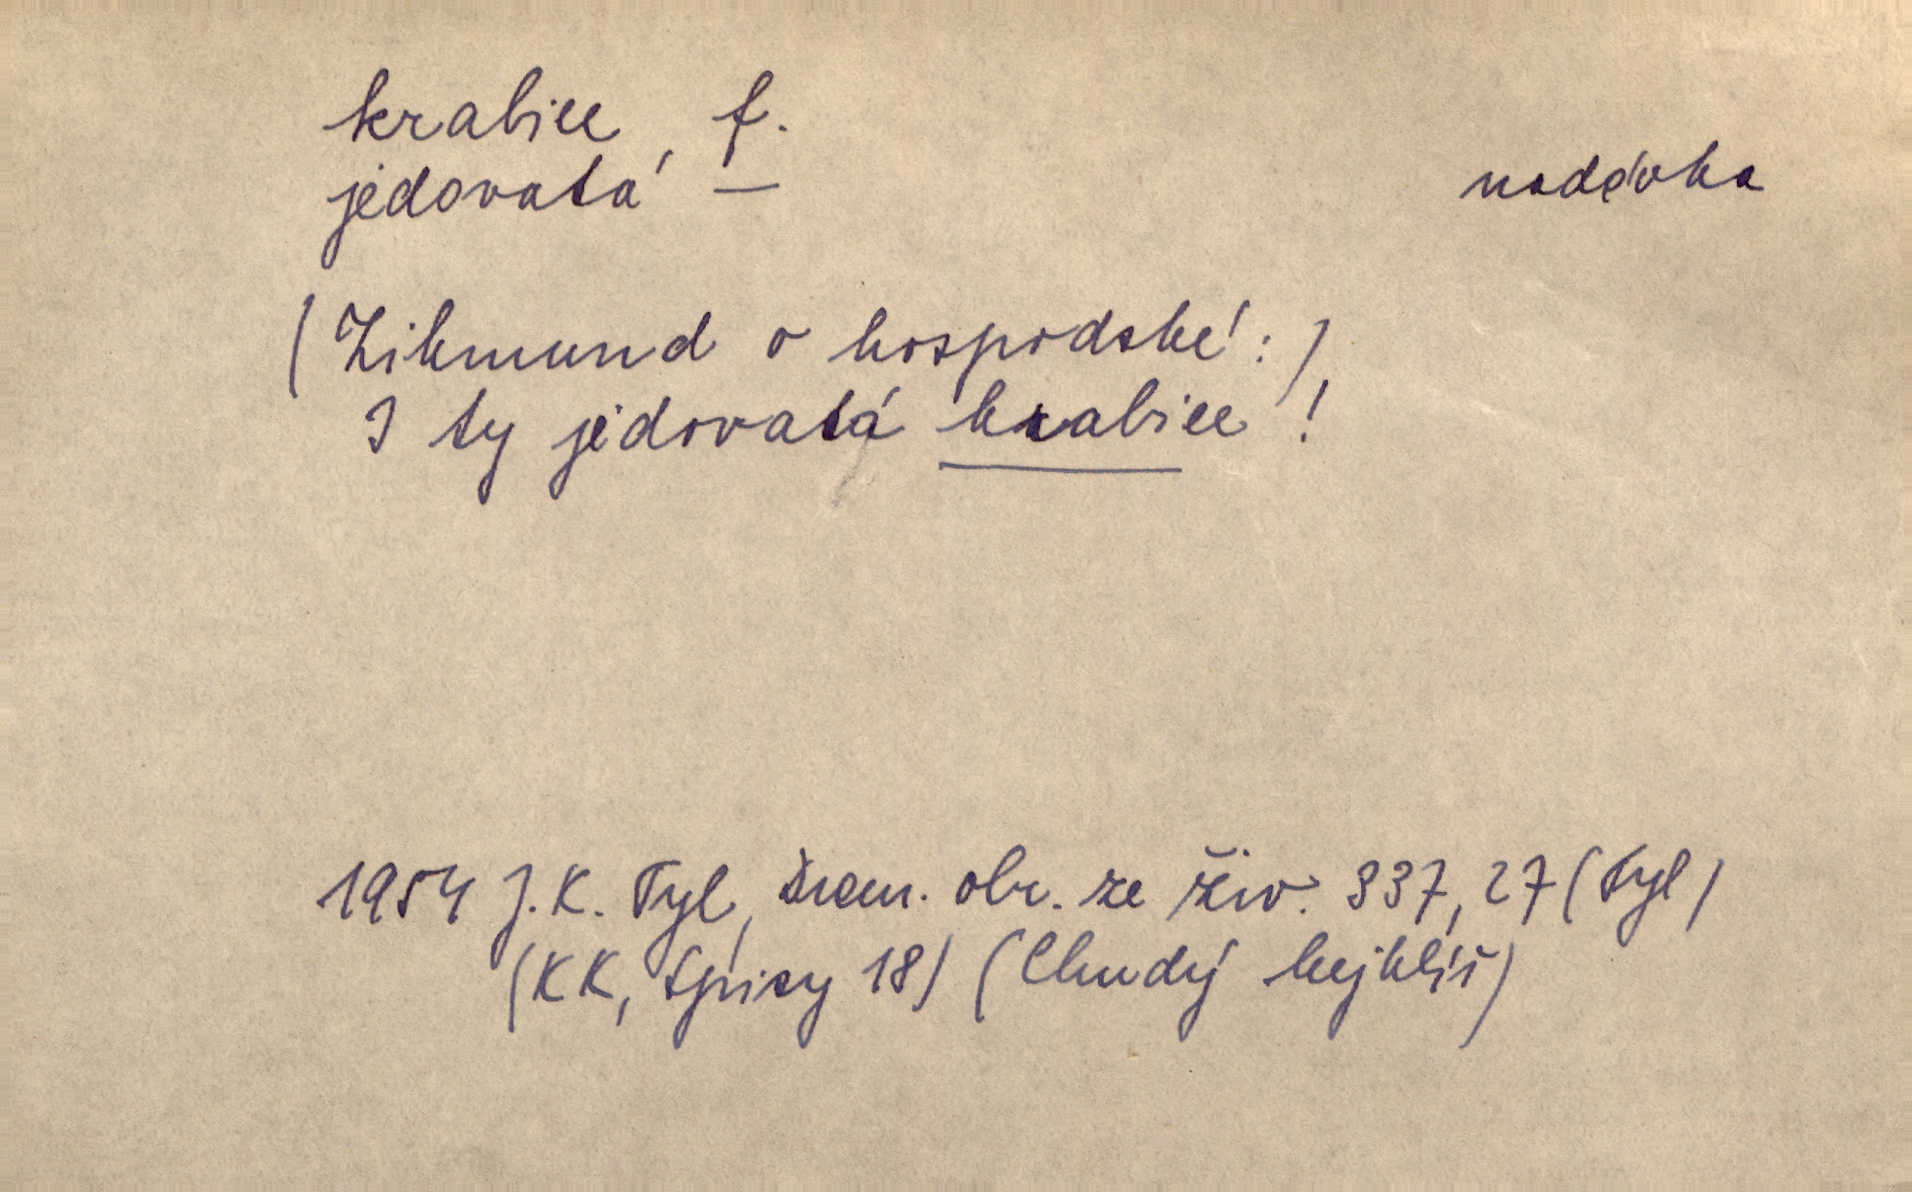 krabice, f.
jedovatá —
nadávka
(Zikmund o hospodské:)
I ty jedovatá krabice!
1954 J.K. Tyl, Dram. obr. ze živ. 337, 27 (Tyl)
(KK, Spisy 18) (Chudý kejklíř)